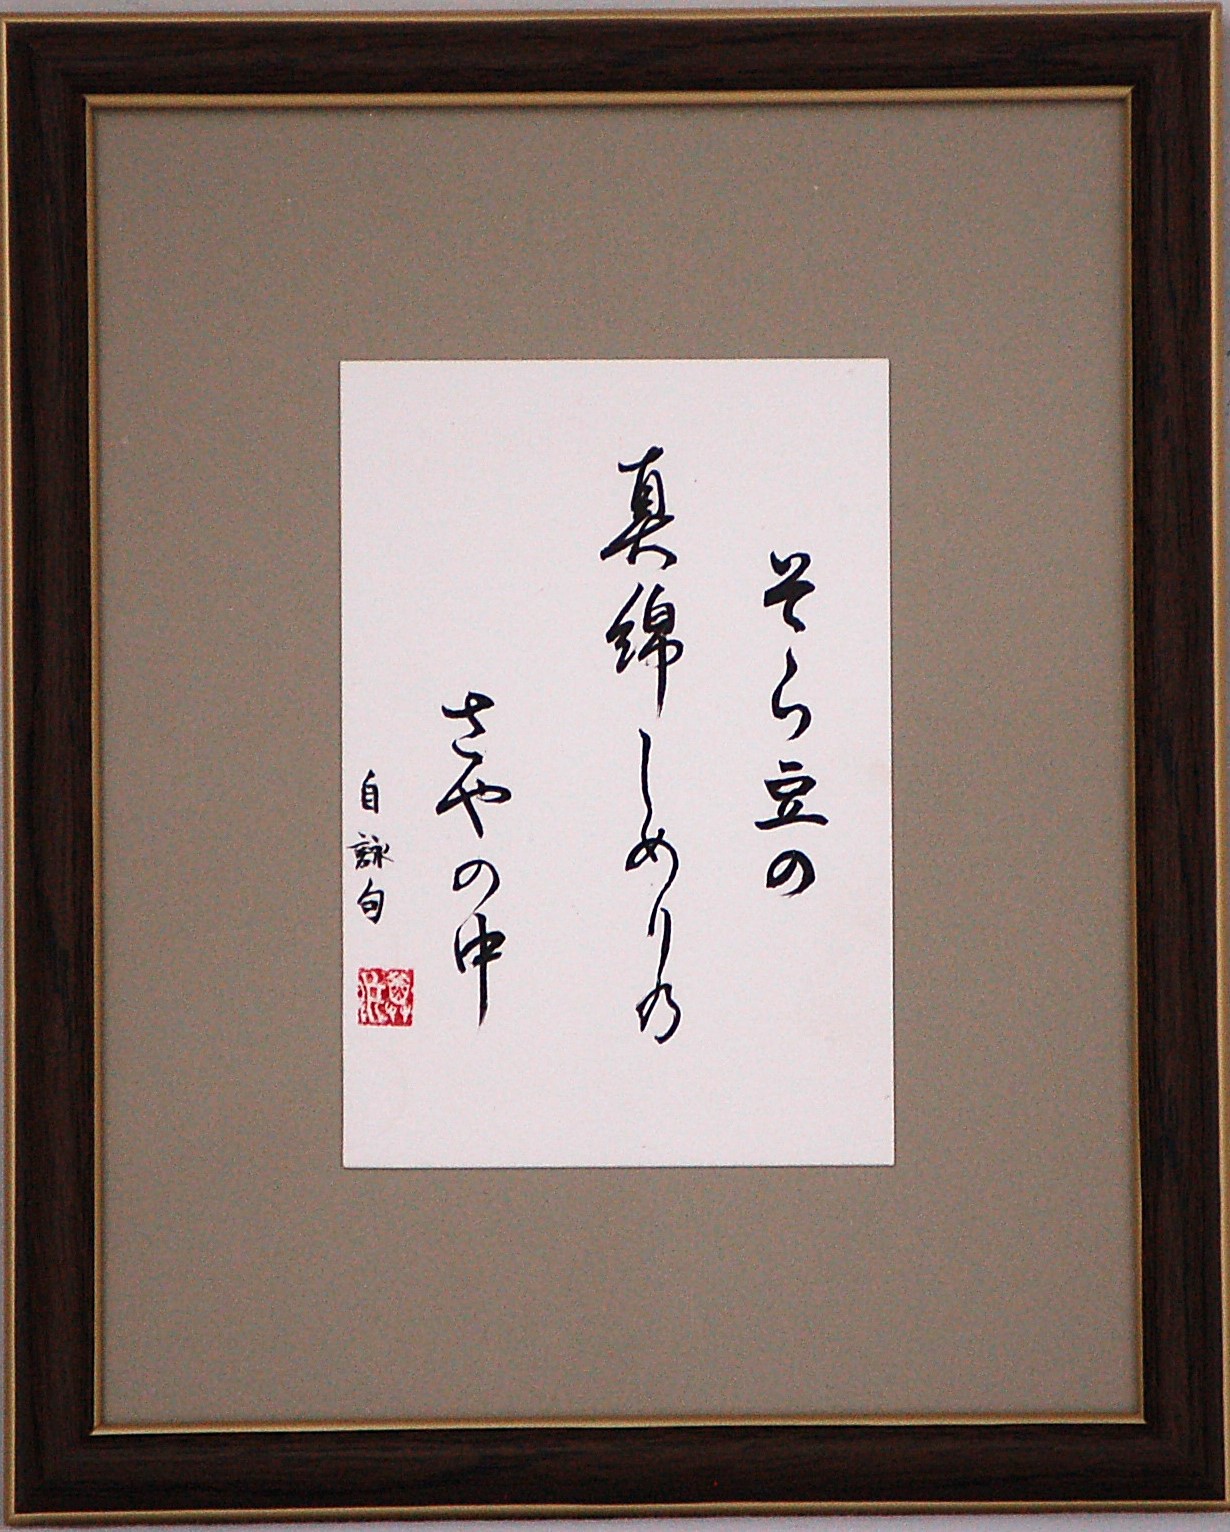 そら豆の
真綿しめりの
さやの中
自詠句